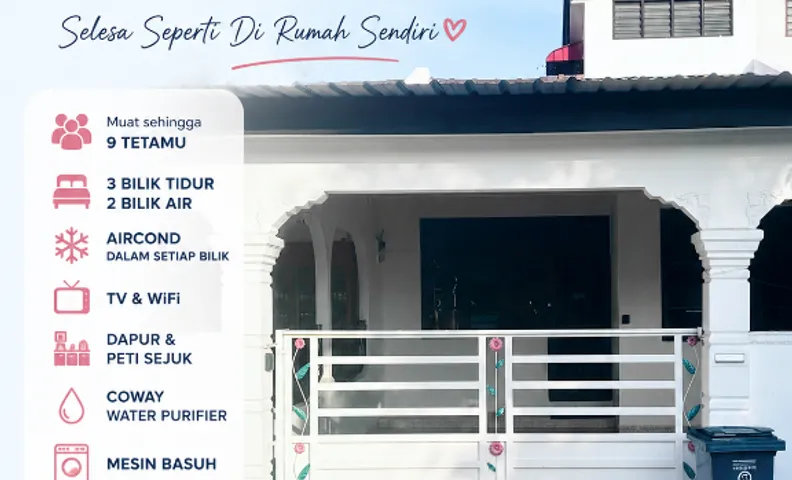 Selesa Seperti Di Rumah Sendiri
Muat sehingga
9 TETAMU
3 BILIK TIDUR
2 BILIK AIR
AIRCOND
DALAM SETIAP BILIK
TV & WiFi
DAPUR &
PETI SEJUK
COWAY
WATER PURIFIER
MESIN BASUH